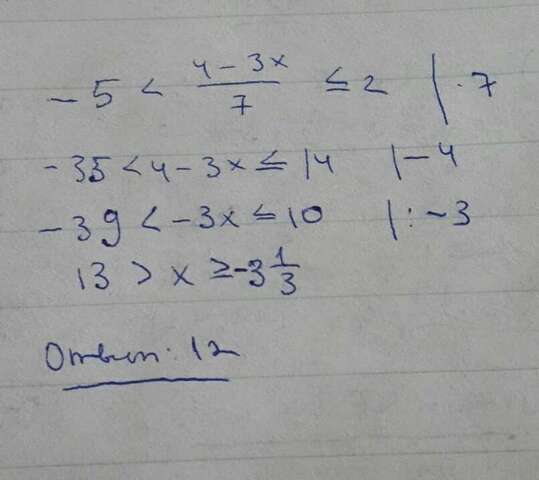 -5 < \frac{4-3x}{7} ≤ 2 | ·7
-35 < 4-3x ≤ 14 | -4
-39 < -3x ≤ 10 | : -3
13 > x ≥ -3 \frac{1}{3}
Ответ: 12